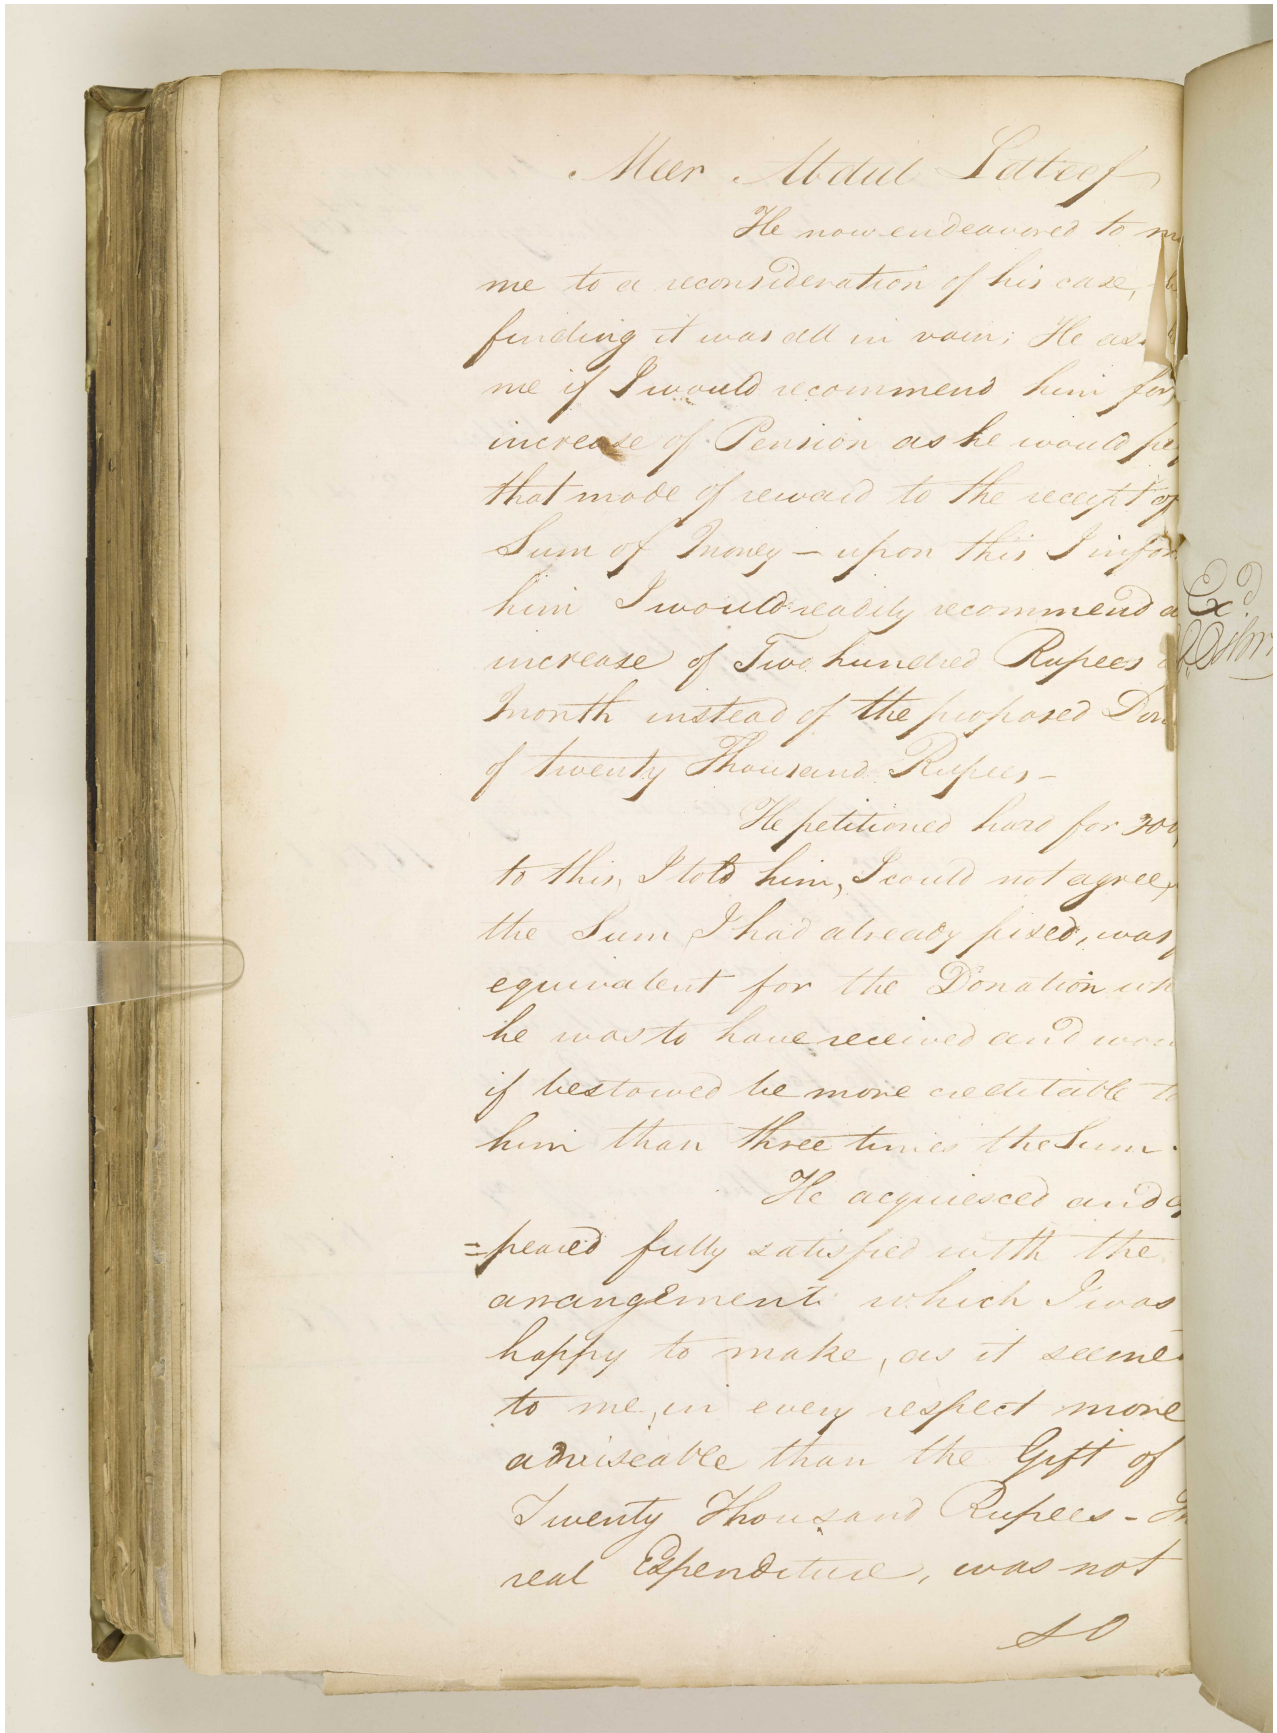 Meer Abdul Lateef
He now endeavored to
me to a reconsideration of his case,
finding it was all in vain; He
me if I would recommend him for
increase of Pension as he would
that mode of reward to the receipt of
Sum of Money – upon this I infor
him I would readily recommend a
increase of Two hundred Rupees
Month instead of the proposed Don
of twenty Thousand Rupees –
He petitioned hard for 300
to this, I told him, I could not agree,
the Sum I had already fixed, was
equivalent for the Donation wh
he was to have received and wou
if bestowed be more creditable to
him than three times the Sum.
He acquiesced and ap
=peared fully satisfied with the
arrangement which I was
happy to make, as it seemed
to me, in every respect more
adviseable than the Gift of
Twenty Thousand Rupees –
real Expenditure, was not
so
Exd.